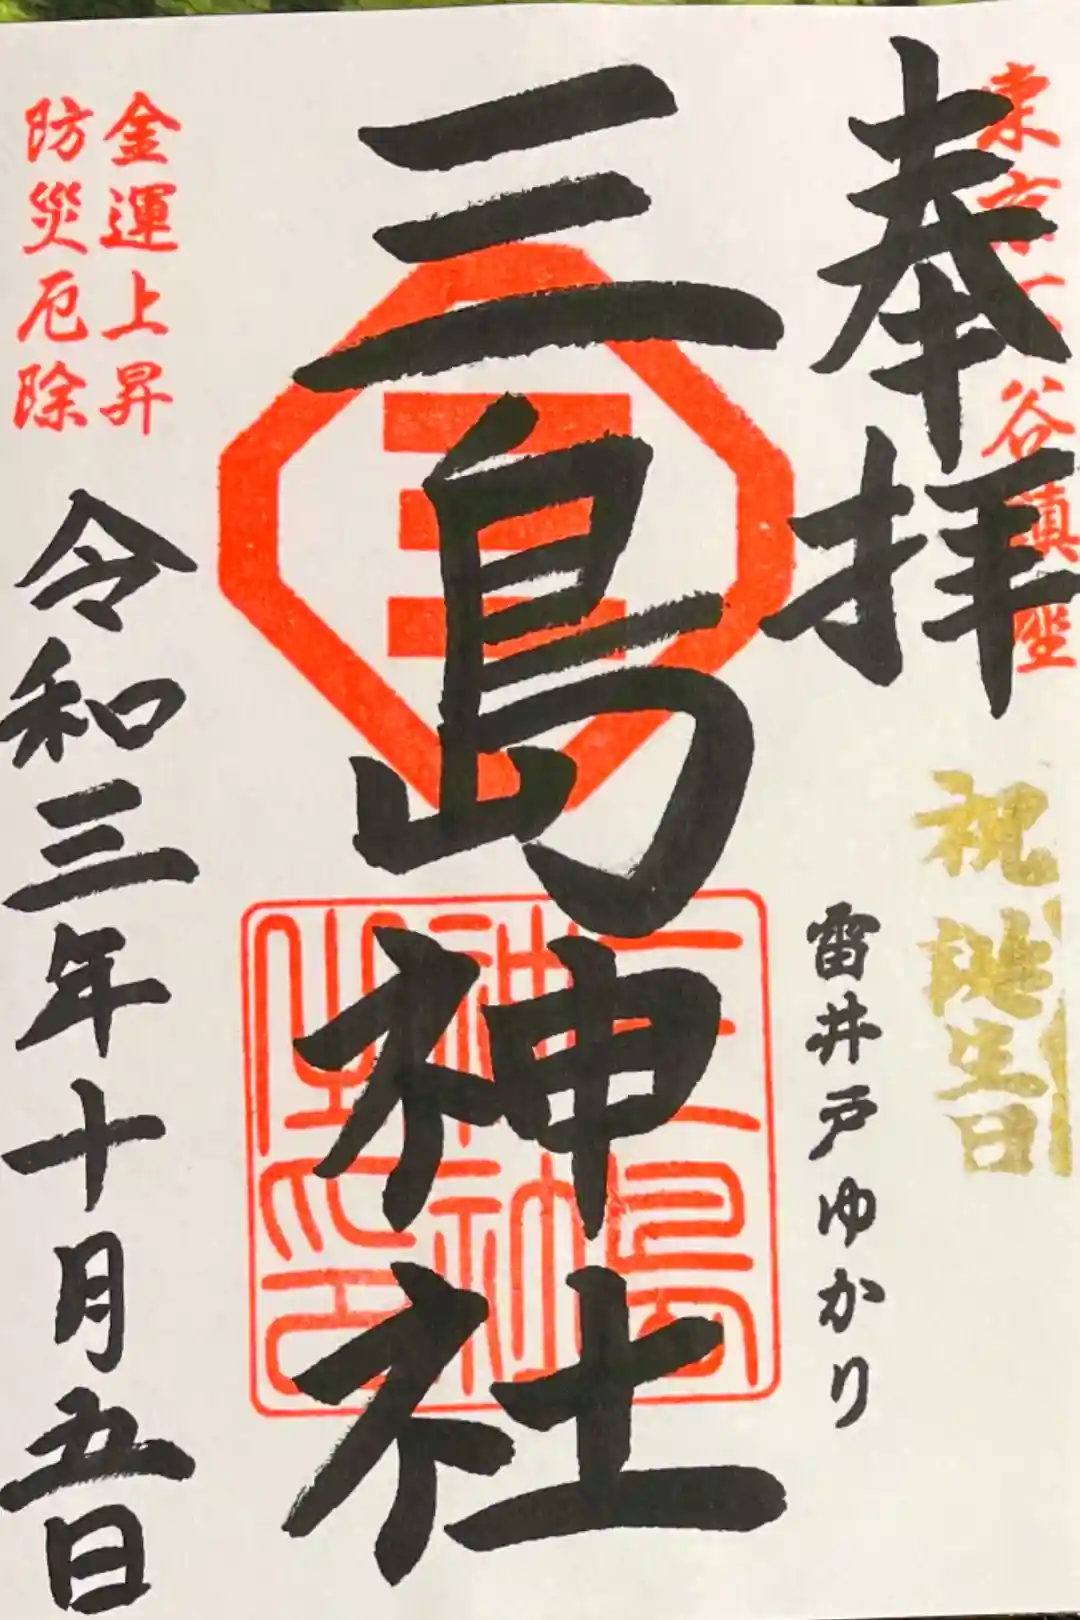 東京下谷鎮座
奉拝
祝誕生日
雷井戸ゆかり
三島神社
三島神社之印
金運上昇
防災厄除
令和三年十月五日